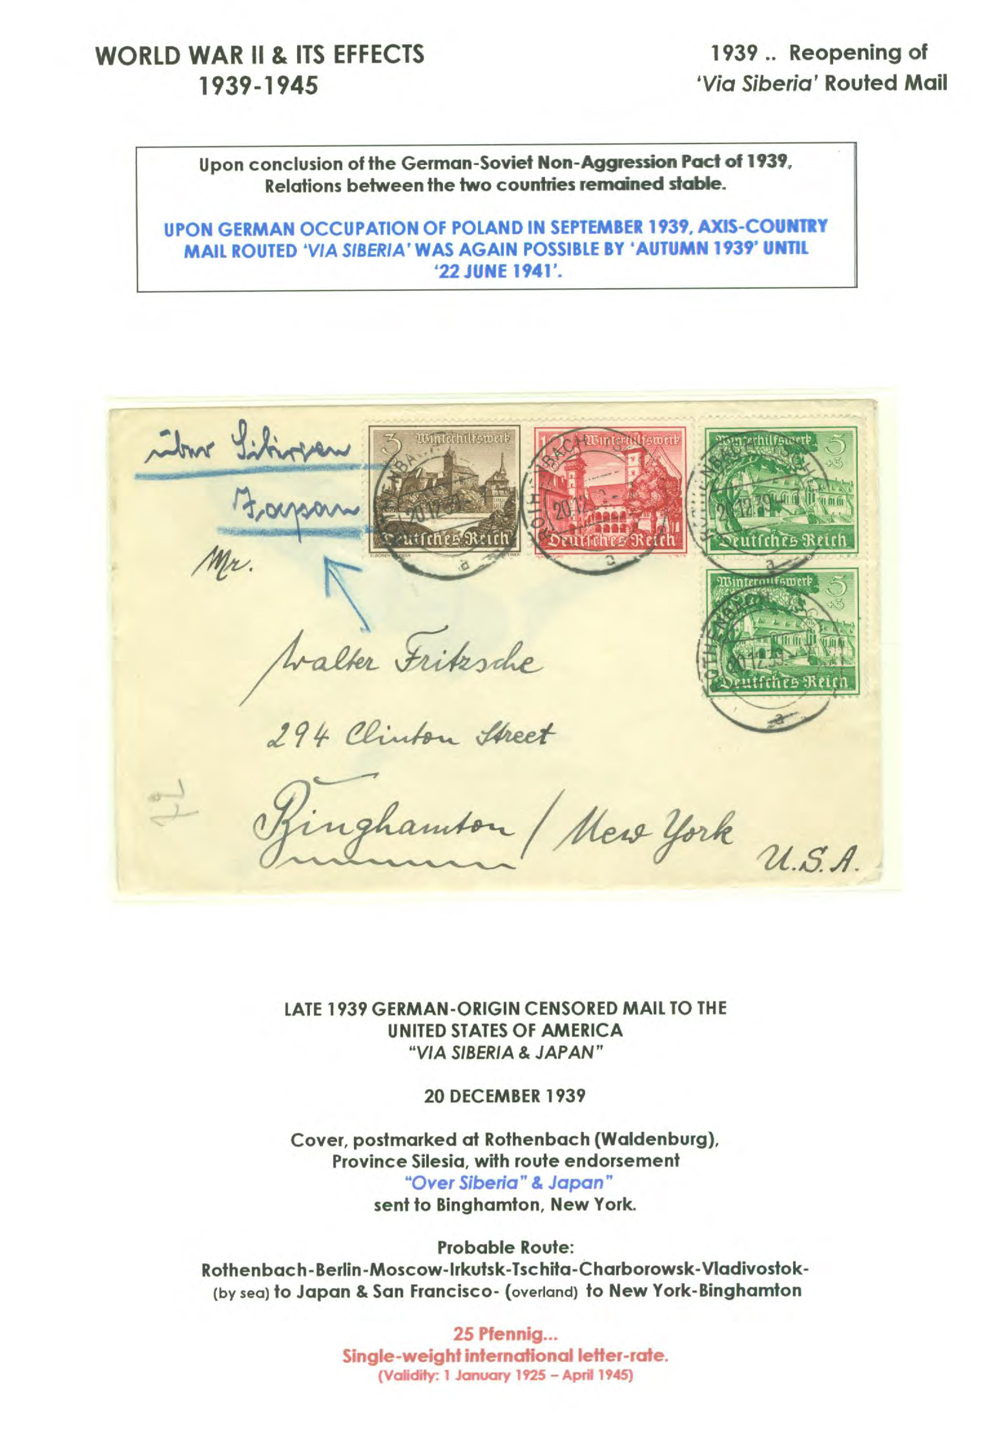 WORLD WAR II & ITS EFFECTS
1939-1945
1939 .. Reopening of
'Via Siberia' Routed Mail
Upon conclusion of the German-Soviet Non-Aggression Pact of 1939,
Relations between the two countries remained stable.
UPON GERMAN OCCUPATION OF POLAND IN SEPTEMBER 1939, AXIS-COUNTRY
MAIL ROUTED 'VIA SIBERIA' WAS AGAIN POSSIBLE BY 'AUTUMN 1939' UNTIL
'22 JUNE 1941'.
über Sibirien
Japan
3 Winterhilfswerk
Deutsches Reich
Winterhilfswerk
Deutsches Reich
Winterhilfswerk 5
+3
Deutsches Reich
Winterhilfswerk 5
+3
Deutsches Reich
20.12.39
a
ROTHENBACH
20.12
a
ROTHENBACH
20.12.39
a
ROTHENBACH
20.12.39
a
Mr.
Walter Fritzsche
294 Clinton Street
Binghamton / New York
U.S.A.
LATE 1939 GERMAN-ORIGIN CENSORED MAIL TO THE
UNITED STATES OF AMERICA
"VIA SIBERIA & JAPAN"
20 DECEMBER 1939
Cover, postmarked at Rothenbach (Waldenburg),
Province Silesia, with route endorsement
"Over Siberia" & Japan"
sent to Binghamton, New York.
Probable Route:
Rothenbach-Berlin-Moscow-Irkutsk-Tschita-Charborowsk-Vladivostok-
(by sea) to Japan & San Francisco- (overland) to New York-Binghamton
25 Pfennig...
Single-weight international letter-rate.
(Validity: 1 January 1925 – April 1945)